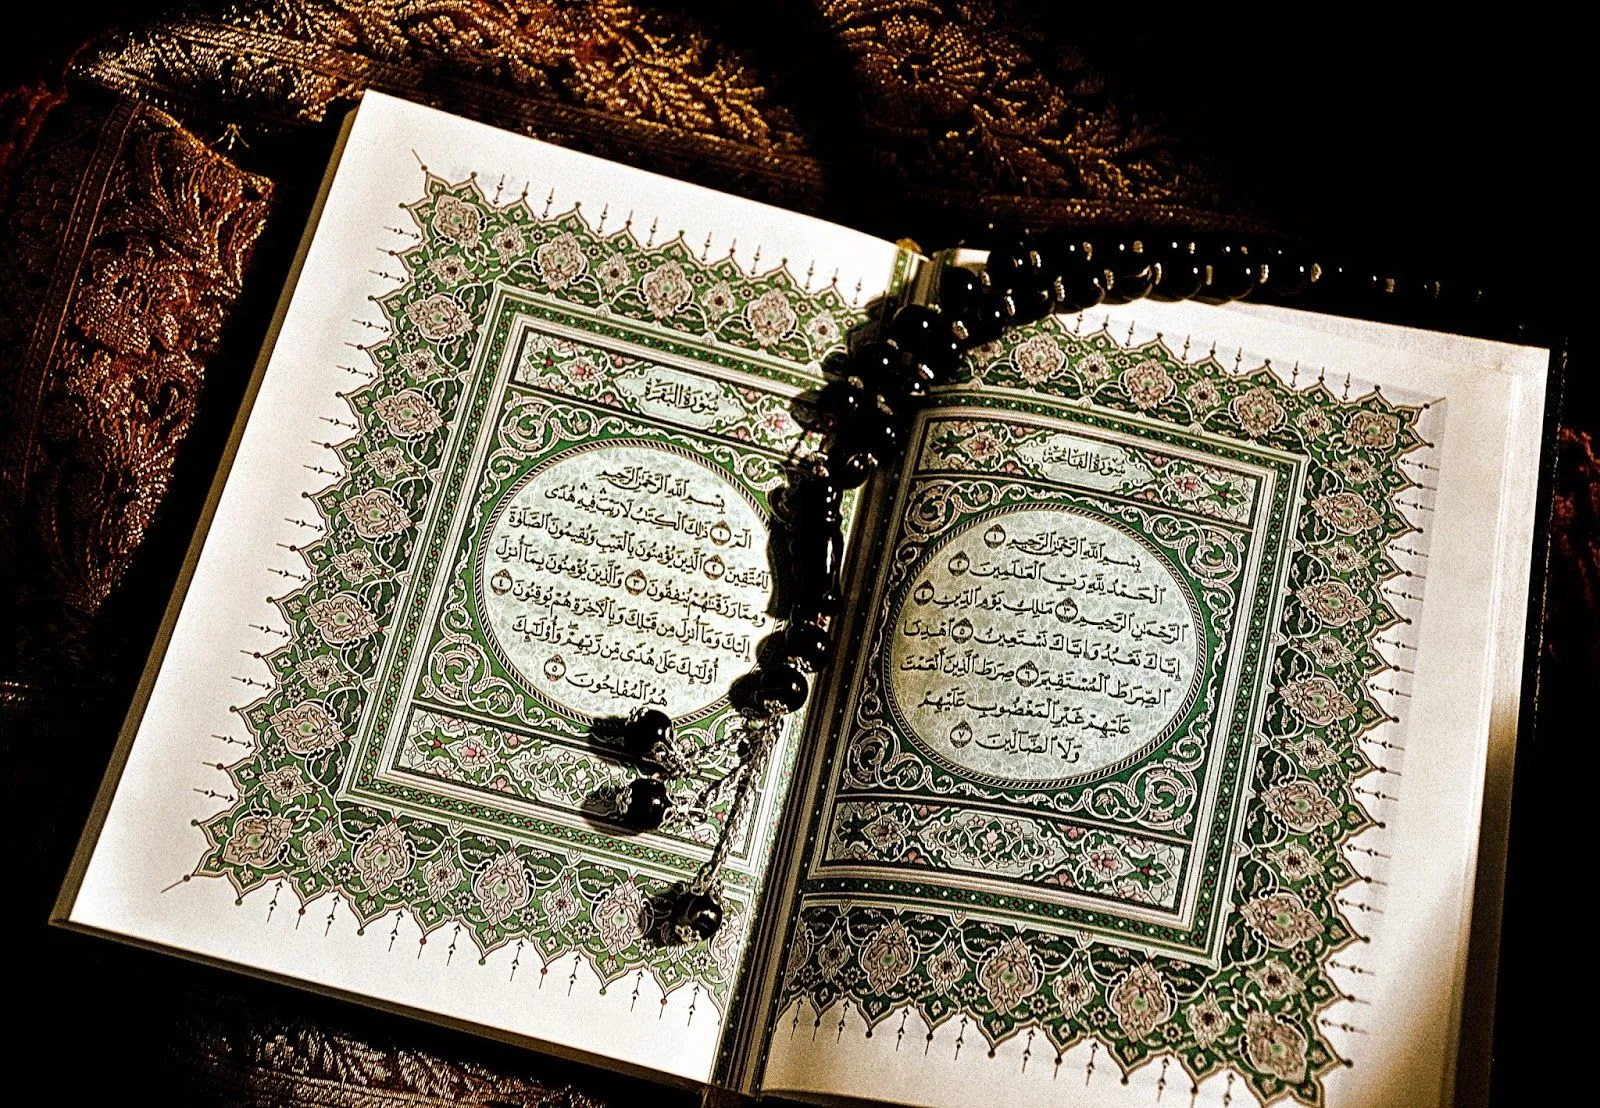 سُورَةُ الفَاتِحَةِ
بِسْمِ اللَّهِ الرَّحْمَٰنِ الرَّحِيمِ ١
الْحَمْدُ لِلَّهِ رَبِّ الْعَالَمِينَ ٢
الرَّحْمَٰنِ الرَّحِيمِ ٣ مَالِكِ يَوْمِ الدِّينِ ٤
إِيَّاكَ نَعْبُدُ وَإِيَّاكَ نَسْتَعِينُ ٥ اهْدِنَا
الصِّرَاطَ الْمُسْتَقِيمَ ٦ صِرَاطَ الَّذِينَ أَنْعَمْتَ
عَلَيْهِمْ غَيْرِ الْمَغْضُوبِ عَلَيْهِمْ
وَلَا الضَّالِّينَ ٧
سُورَةُ البَقَرَةِ
بِسْمِ اللَّهِ الرَّحْمَٰنِ الرَّحِيمِ
الٓمٓ ١ ذَٰلِكَ الْكِتَابُ لَا رَيْبَ ۛ فِيهِ ۛ هُدًى
لِّلْمُتَّقِينَ ٢ الَّذِينَ يُؤْمِنُونَ بِالْغَيْبِ وَيُقِيمُونَ الصَّلَاةَ
وَمِمَّا رَزَقْنَاهُمْ يُنفِقُونَ ٣ وَالَّذِينَ يُؤْمِنُونَ بِمَا أُنزِلَ
إِلَيْكَ وَمَا أُنزِلَ مِن قَبْلِكَ وَبِالْآخِرَةِ هُمْ يُوقِنُونَ ٤
أُولَٰئِكَ عَلَىٰ هُدًى مِّن رَّبِّهِمْ ۖ وَأُولَٰئِكَ
هُمُ الْمُفْلِحُونَ ٥